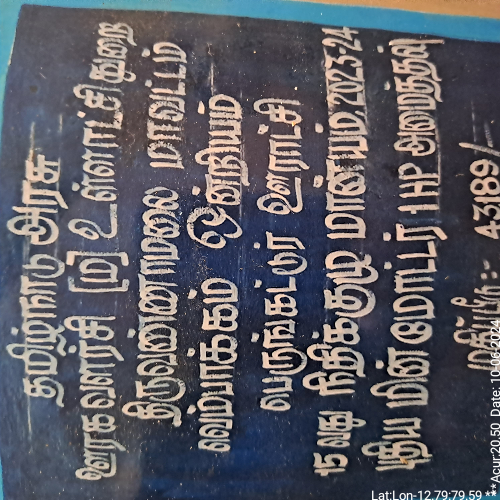 தமிழ்நாடு அரசு
ஊரக வளர்சி (ம) உள்ளாட்சி துறை
திருவண்ணாமலை மாவட்டம்
வெம்பாக்கம் ஒன்றியம்
பெருங்கட்டூர் ஊராட்சி
15 வது நிதிக்குழு மானியம் 2023-24
புதிய மின் மோட்டர் 1 HP அமைத்தல்
மதிப்பீடு:- 43189/-
Lat:Lon-12.79:79.59
Acur:20.50 Date: 10-06-2024